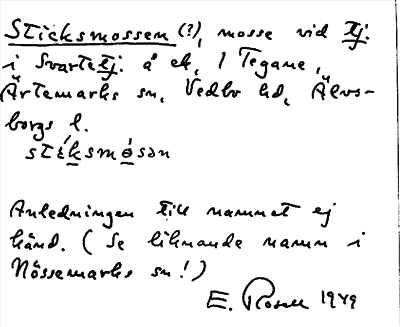 Sticksmossen (?), mosse vid tj.
i Svartetj. å ek. 1 Tegane,
Ärtemarks sn, Vedbo hd, Älvs-
borgs l.
stéksmósən
Anledningen till namnet ej
känd. (Se liknande namn i
Nössemarks sn!)
E. Rosell 1949